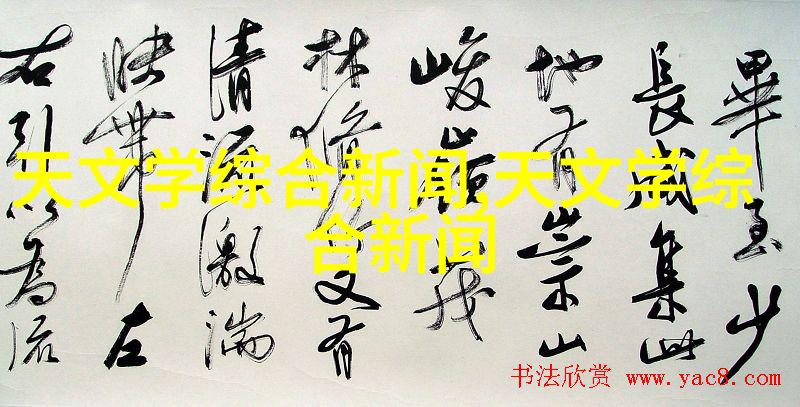 畢至少
長咸集此
地有崇山
峻嶺茂
林脩竹又有
清流激湍
映帶左
右引以為流
天文学综合新闻,天文学综
合新闻
书法欣赏 www.yac8.com